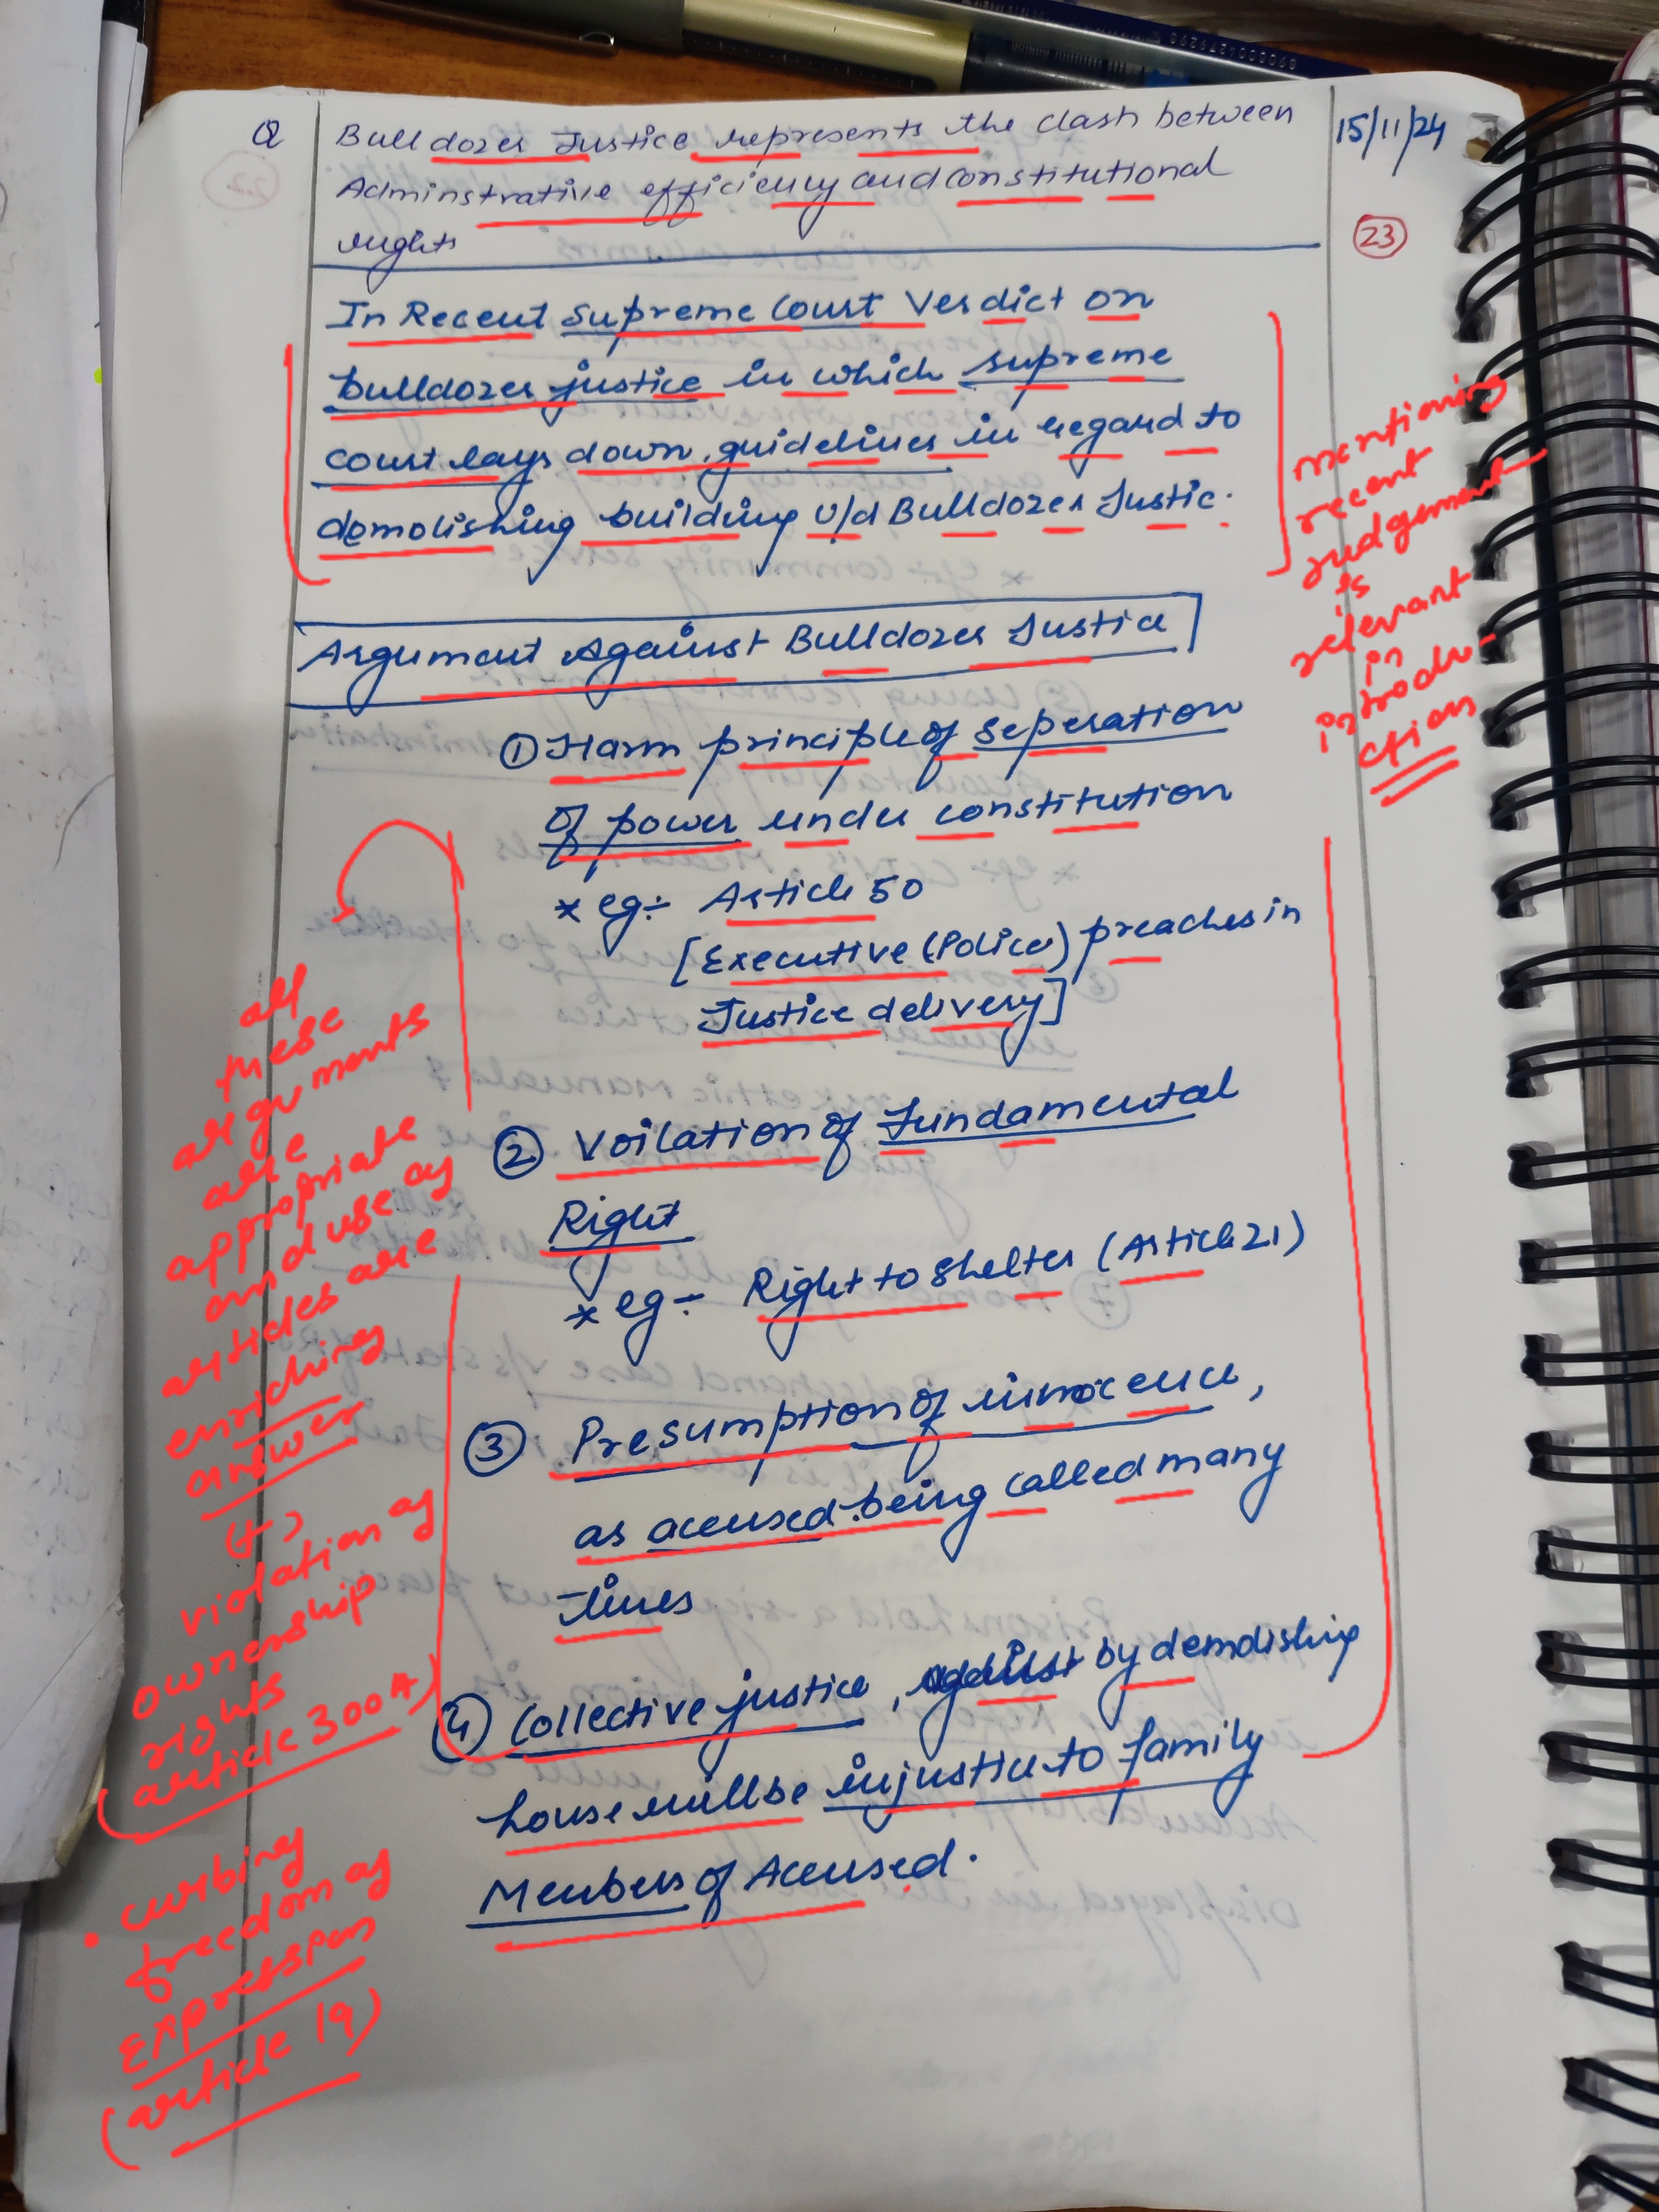 Q Bulldozer Justice represents the clash between
Adminstrative efficiency and constitutional
rights
15/11/24
23
In Recent Supreme Court Verdict on
bulldozer justice in which supreme
court lays down guidelines in regard to
demolishing building U/d Bulldozer Justic.
mentioning
recent
judgement
is
relevant
in
introdu-
ction
Argument Against Bulldozer Justice
① Harm principle of seperation
of power under constitution
* eg:- Article 50
[Executive (Police) preaches in
Justice delivery]
② Voilation of Fundamental
Right
* eg:- Right to shelter (Article 21)
③ Presumption of innocence,
as accused being called many
times
④ Collective justice, by demolishing
house will be injustice to family
Members of Accused.
all
these
arguments
are
appropriate
and use of
articles are
enriching
answer
(+)
violation of
ownership
rights
(article 300A)
• curbing
freedom of
expression
(article 19)